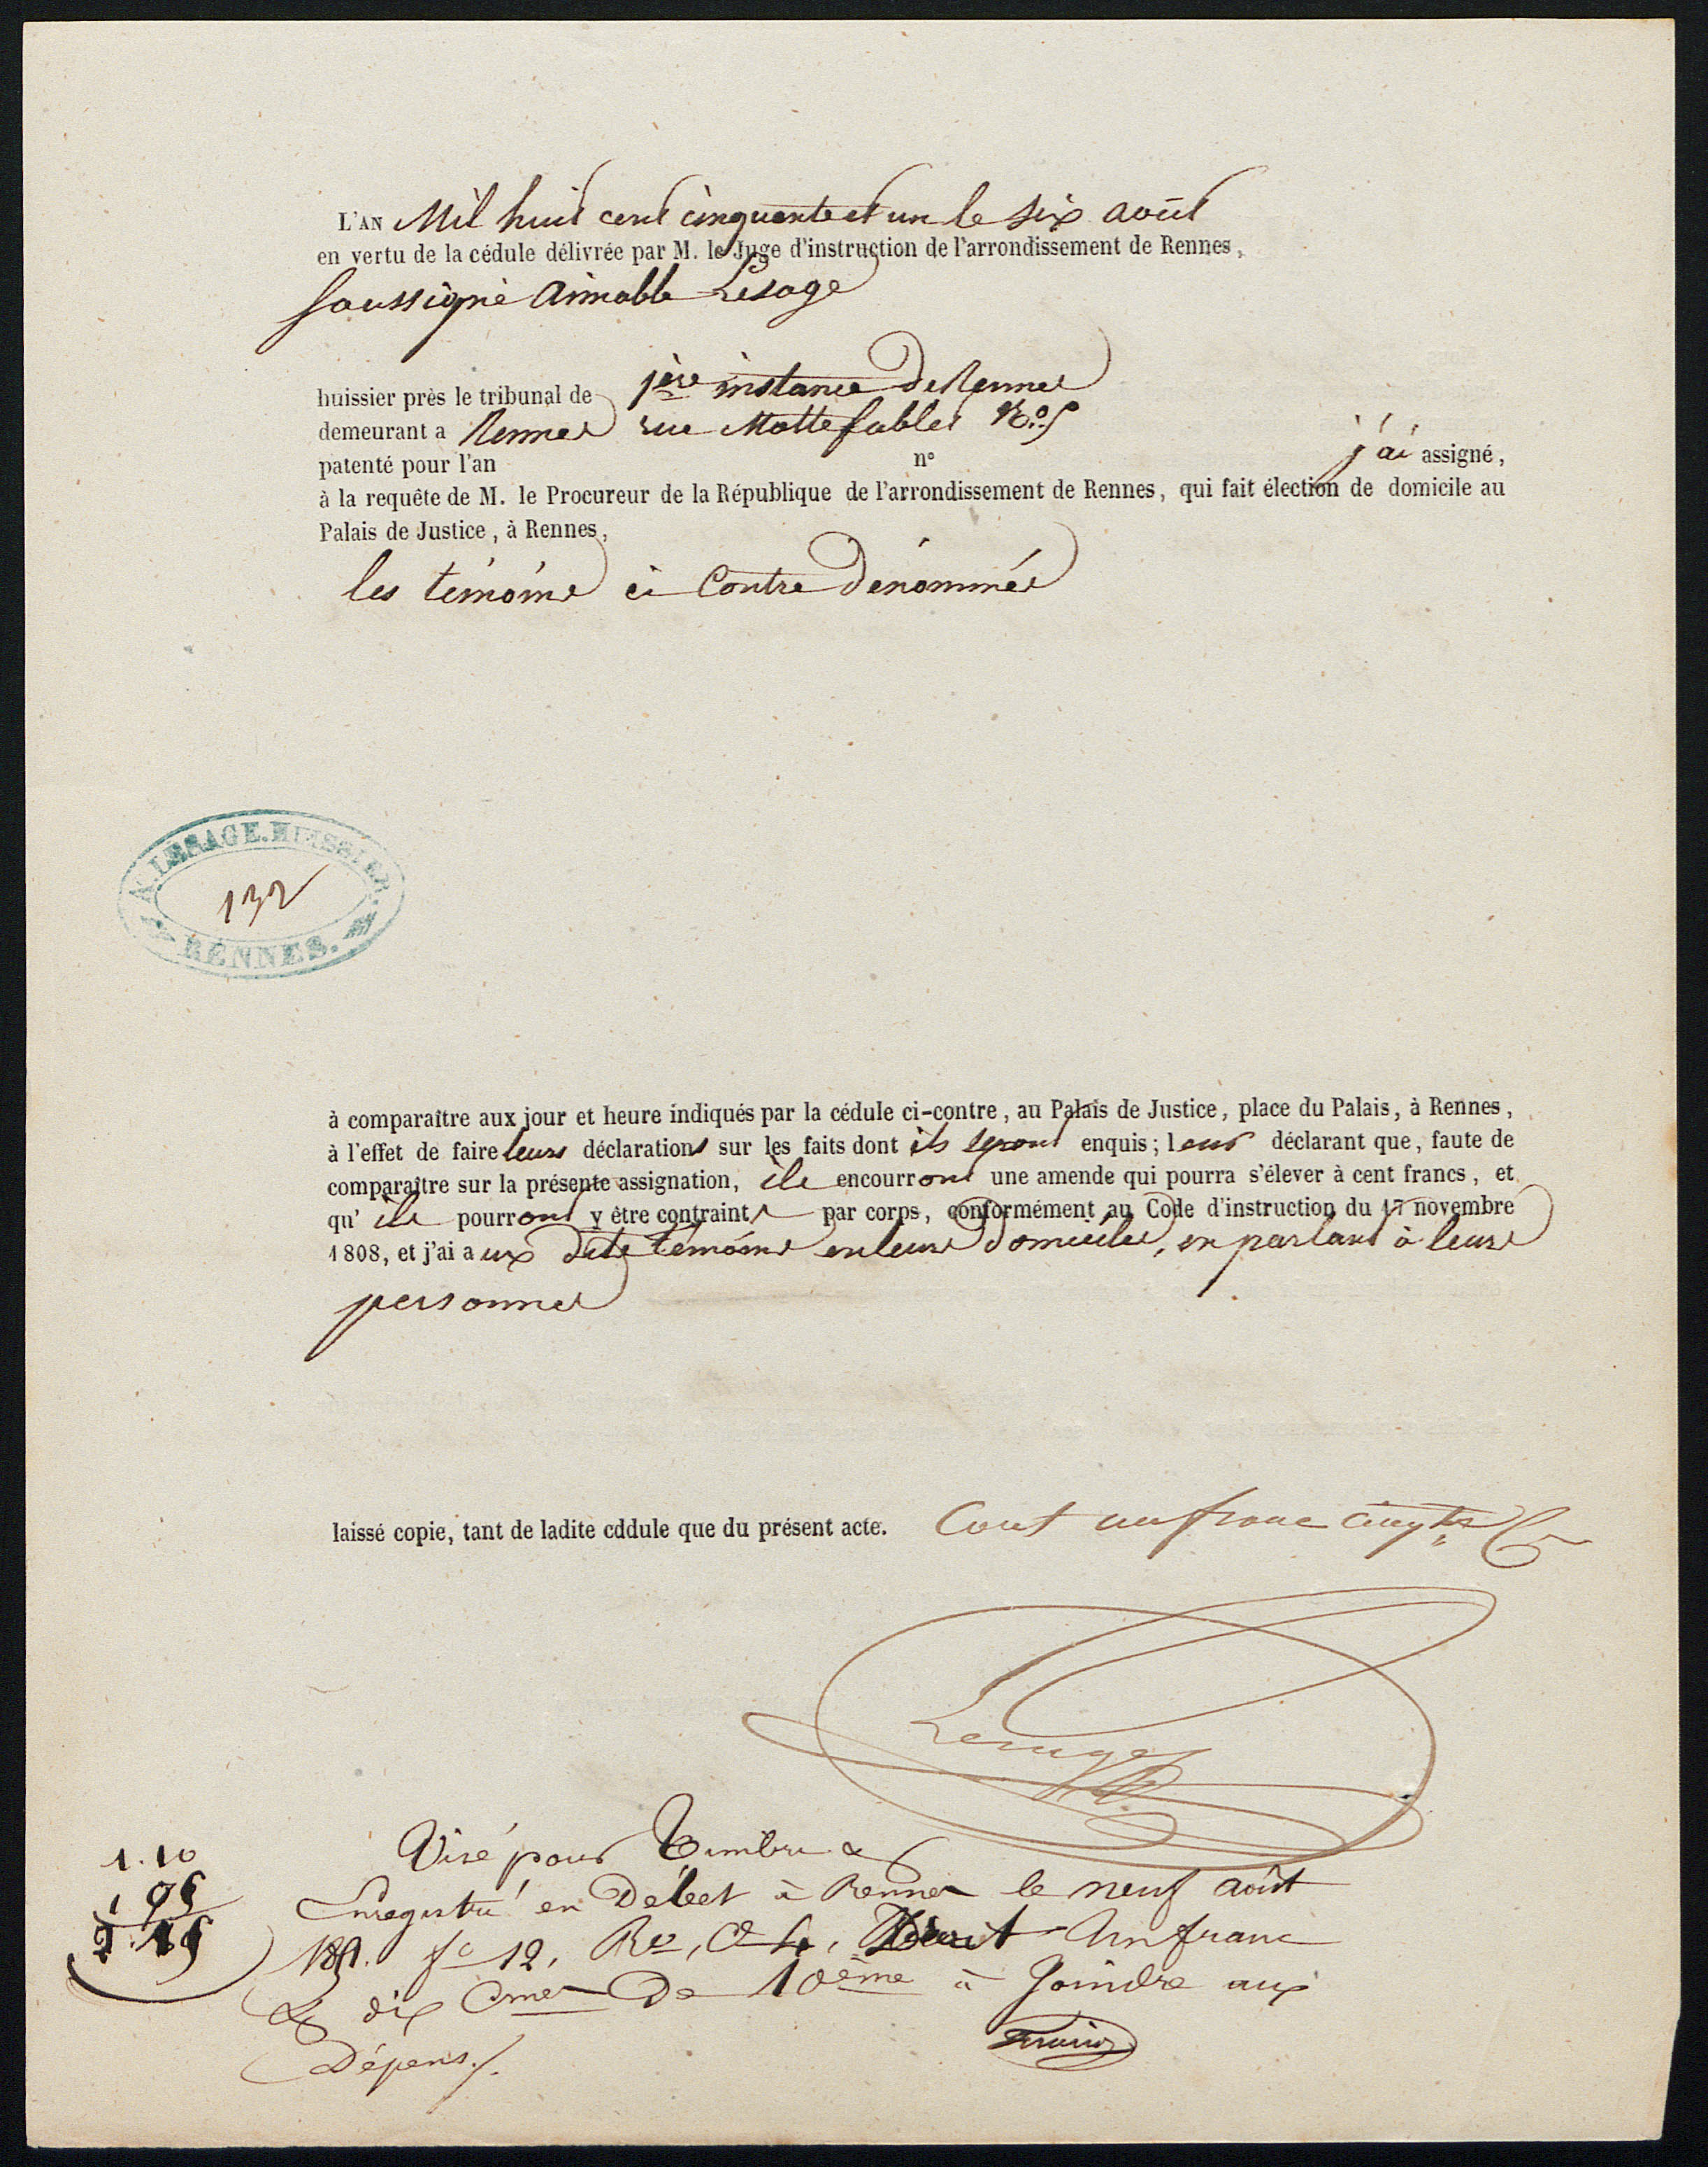 L'AN Mil huit cent cinquante et un le six août
en vertu de la cédule délivrée par M. le Juge d'instruction de l'arrondissement de Rennes,
soussigné Aimable Lesage
huissier près le tribunal de 1ère instance de Rennes
demeurant a Rennes rue Motte fablet No. 5
patenté pour l'an n° j'ai assigné,
à la requête de M. le Procureur de la République de l'arrondissement de Rennes, qui fait élection de domicile au
Palais de Justice, à Rennes,
les témoins ci Contre dénommés
A. LESAGE. HUISSIER.
132
RENNES.
à comparaître aux jour et heure indiqués par la cédule ci-contre, au Palais de Justice, place du Palais, à Rennes,
à l'effet de faire leurs déclarations sur les faits dont ils seront enquis; leur déclarant que, faute de
comparaître sur la présente assignation, ils encourront une amende qui pourra s'élever à cent francs, et
qu' ils pourront y être contraints par corps, conformément au Code d'instruction du 17 novembre
1808, et j'ai aux dits témoins en leurs domiciles, en parlant à leurs
personnes
laissé copie, tant de ladite cddule que du présent acte. Cout un franc cinqte
Lesage
1.10
Visé pour Timbre &
Enregistré en Débet à Rennes le neuf août
1851. fo 12, Ro, C 4, Un franc
& dix Cmes De 10ème à Joindre aux
Dépens./.